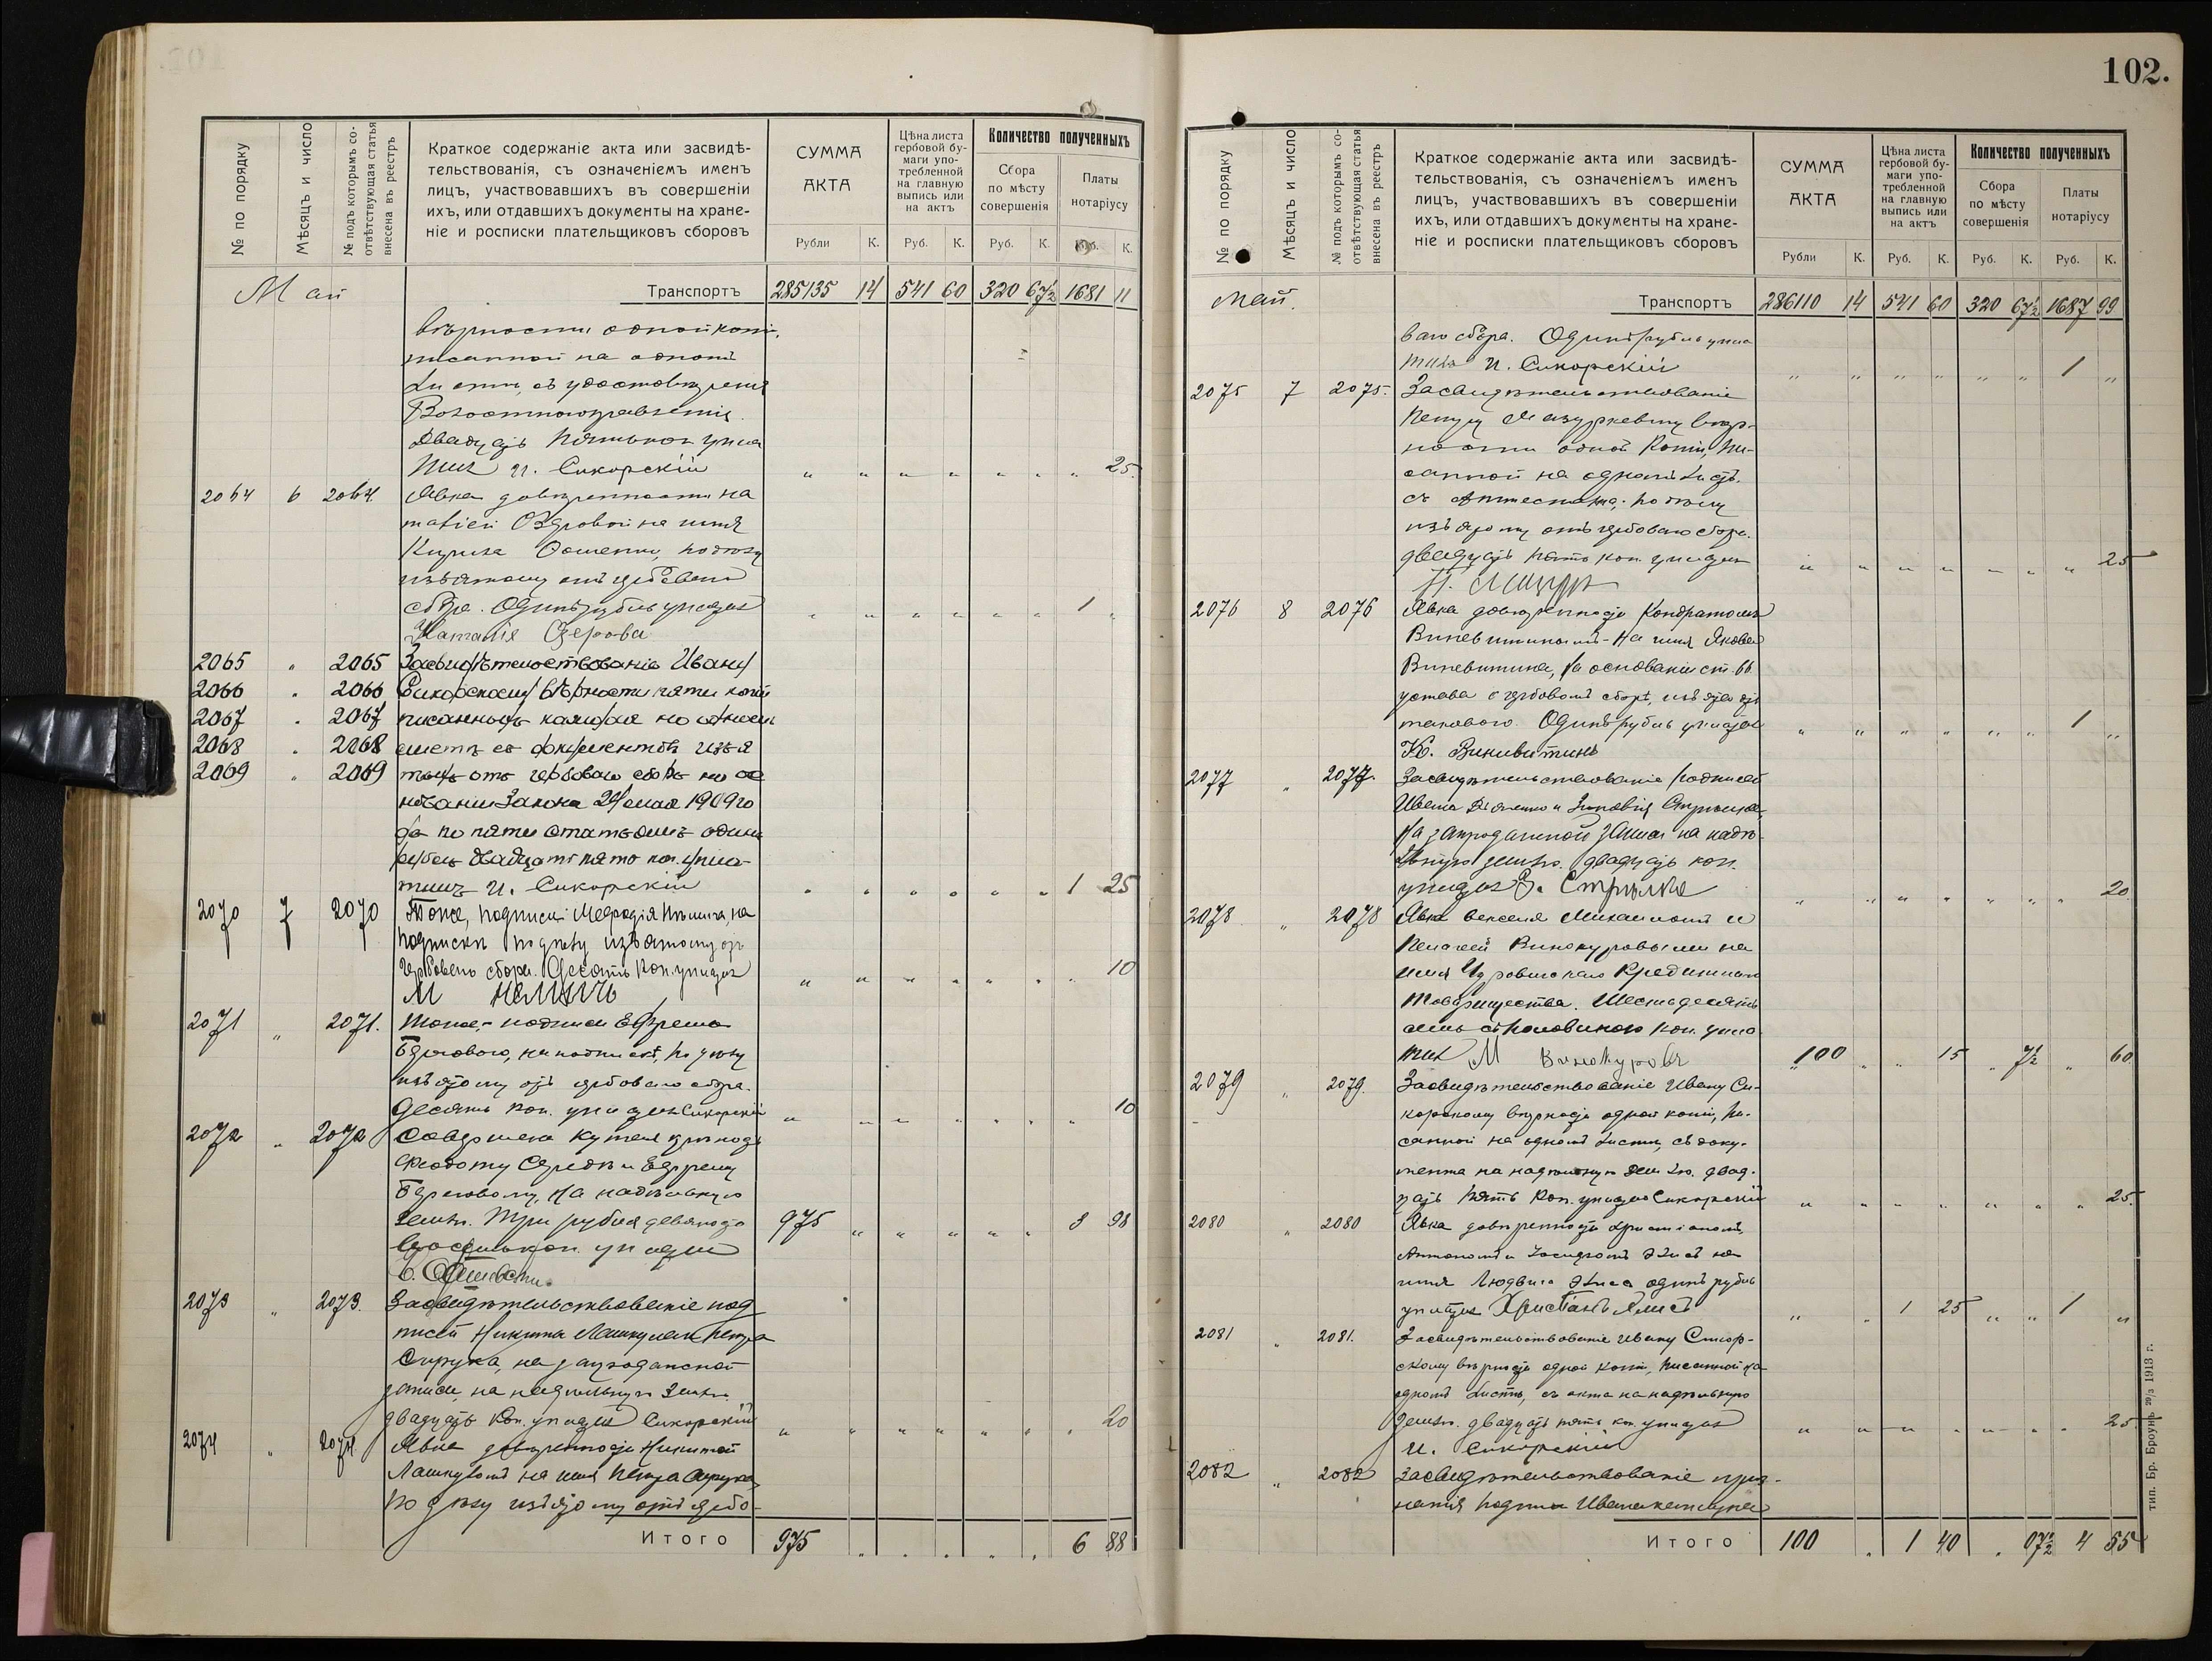 102.
№ по порядку
Мѣсяцъ и число
№ подъ которымъ со-
отвѣтствующая статья
внесена въ реестръ
Краткое содержаніе акта или засвидѣ-
тельствованія, съ означеніемъ именъ
лицъ, участвовавшихъ въ совершеніи
ихъ, или отдавшихъ документы на хране-
ніе и росписки плательщиковъ сборовъ
СУММА
АКТА
Цѣна листа
гербовой бу-
маги упо-
требленной
на главную
выпись или
на актъ
Количество полученныхъ
Сбора
по мѣсту
совершенія
Платы
нотаріусу
Рубли К. Руб. К. Руб. К. Руб. К.
Май Транспортъ 285135 14 541 60 320 67½ 1681 11
вѣрности одной копіи,
писанной на одномъ
Листѣ, съ удостовѣренія
Волостного правленія.
Двадцать пять коп. упла
тилъ И. Сикорскій " " " " " " " 25
2064 6 2064. Явка довѣренности На
таліей Озеровой на имя
Кирила
изъятому отъ гербоваго
сбора. Одинъ рубль уплатила " " " " " " 1 "
Наталія Озерова
2065 " 2065 Засвидѣтельствованіе Ивану
2066 " 2066 Сикорскому вѣрности пяти копій
2067 " 2067 писанныхъ каждая на одномъ
2068 " 2068 листѣ съ документовъ изъя
2069 " 2069 тыхъ отъ гербоваго сбора на ос
нованіи Закона 29 мая 1909 го
да по пяти статьямъ одинъ
рубль двадцать пять коп. упла-
тилъ И. Сикорскій " " " " " " 1 25
2070 7 2070 Тоже, подписи Меѳодія на
подпискѣ по дѣлу изъятому отъ
Гербоваго сбора. Десять коп. уплатилъ " " " " " " " 10
М
2071 " 2071. Тоже, подписи Ефрема
Берегового, на подпискѣ, по дѣлу
изъятому отъ гербоваго сбора.
Десять коп. уплатилъ Сикорскій " " " " " " " 10
2072 " 2072 Совершена купчая крѣпость
Ѳеодоту Середѣ и Ефрему
Береговому, на надѣльную
землю. Три рубля девяносто 975 " " " " " 3 98
восемь коп. уплатилъ
2073 " 2073. Засвидѣтельствованіе под
писей Никиты Лашкула и Петра
Сирука, на запродажной
записи, на надѣльную землю
двадцать коп. уплатилъ Сикорскій " " " " " " " 20
2074 " 2074 Явка довѣренности Никитой
Лашкуломъ на имя Петра Сирука,
по дѣлу изъятому отъ гербо-
Итого 975 " " " " " 6 88
№ по порядку
Мѣсяцъ и число
№ подъ которымъ со-
отвѣтствующая статья
внесена въ реестръ
Краткое содержаніе акта или засвидѣ-
тельствованія, съ означеніемъ именъ
лицъ, участвовавшихъ въ совершеніи
ихъ, или отдавшихъ документы на хране-
ніе и росписки плательщиковъ сборовъ
СУММА
АКТА
Цѣна листа
гербовой бу-
маги упо-
требленной
на главную
выпись или
на актъ
Количество полученныхъ
Сбора
по мѣсту
совершенія
Платы
нотаріусу
Рубли К. Руб. К. Руб. К. Руб. К.
Май. Транспортъ 286110 14 541 60 320 67½ 1687 99
ваго сбора. Одинъ рубль упла
тилъ И. Сикорскій " " " " " " 1 "
2075 7 2075. Засвидѣтельствованіе
Петру Мазуркевичу вѣр-
ности одной копіи, пи-
санной на одномъ листѣ,
съ Аттестата, по дѣлу
изъятому отъ гербоваго сбора.
двадцать пять коп. уплатилъ " " " " " " " 25
П.
2076 8 2076 Явка довѣренности Кондратомъ
Виневитинымъ - на имя Якова
Виневитина, на основаніи ст. 66
устава о гербовомъ сборѣ, изъята отъ
такового. Одинъ рубль уплатилъ " " " " " " 1 "
К. Виневитинъ
2077 " 2077. Засвидѣтельствованіе подписей
Ивана и Зиновія Стрѣлка,
на запродажной записи на надѣ-
льную землю. двадцать коп.
уплатилъ З. Стрѣлка " " " " " " " 20
2078 " 2078 Явка векселя Михаиломъ и
Пелагеей Винокуровыми на
имя Кредитнаго
Товарищества. Шестьдесятъ
семь съ половиною коп. упла
тилъ М Винокуровъ 100 " " 15 " 7½ " 60
2079 " 2079. Засвидѣтельствованіе Ивану Си-
корскому вѣрности одной копіи, пи-
санной на одномъ листѣ, съ доку-
мента на надѣльную землю. двад-
цать пять коп. уплатилъ Сикорскій " " " " " " " 25
2080 " 2080 Явка довѣренности Христіаномъ,
Антономъ и на
имя Людвига одинъ рубль
уплатилъ " " 1 25 " " 1 "
2081 " 2081. Засвидѣтельствованіе Ивану Сикор-
скому вѣрности одной копіи, писанной на
одномъ листѣ, съ акта на надѣльную
землю. двадцать пять коп. уплатилъ " " " " " " " 25
И. Сикорскій
2082 " 2082 Засвидѣтельствованіе приз-
нанія подписи Ивана
Итого 100 " 1 40 " 07½ 4 55
тип. Бр. Броунъ 20/3 1913 г.